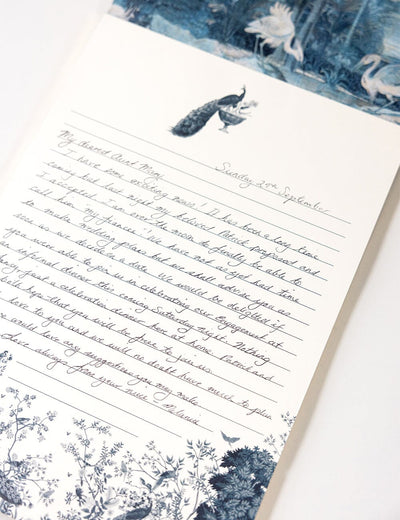 My dearest Aunt Mary
Sunday 29th September
I have some exciting news! It has been a long time
coming but last night my beloved Patrick proposed and
I accepted. I am over the moon to finally be able to
call him 'my fiancee'! We have not as yet had time
to make wedding plans but we shall advise you as
soon as we decide a date. We would be delighted if
you were able to join us in celebrating our Engagement at
an informal dinner this coming Saturday night. Nothing
just a celebration dinner here at home. Patrick and
hope that you will be free to join us
love to you and we will no doubt have much to plan
would love any suggestions you may make
love always from your niece